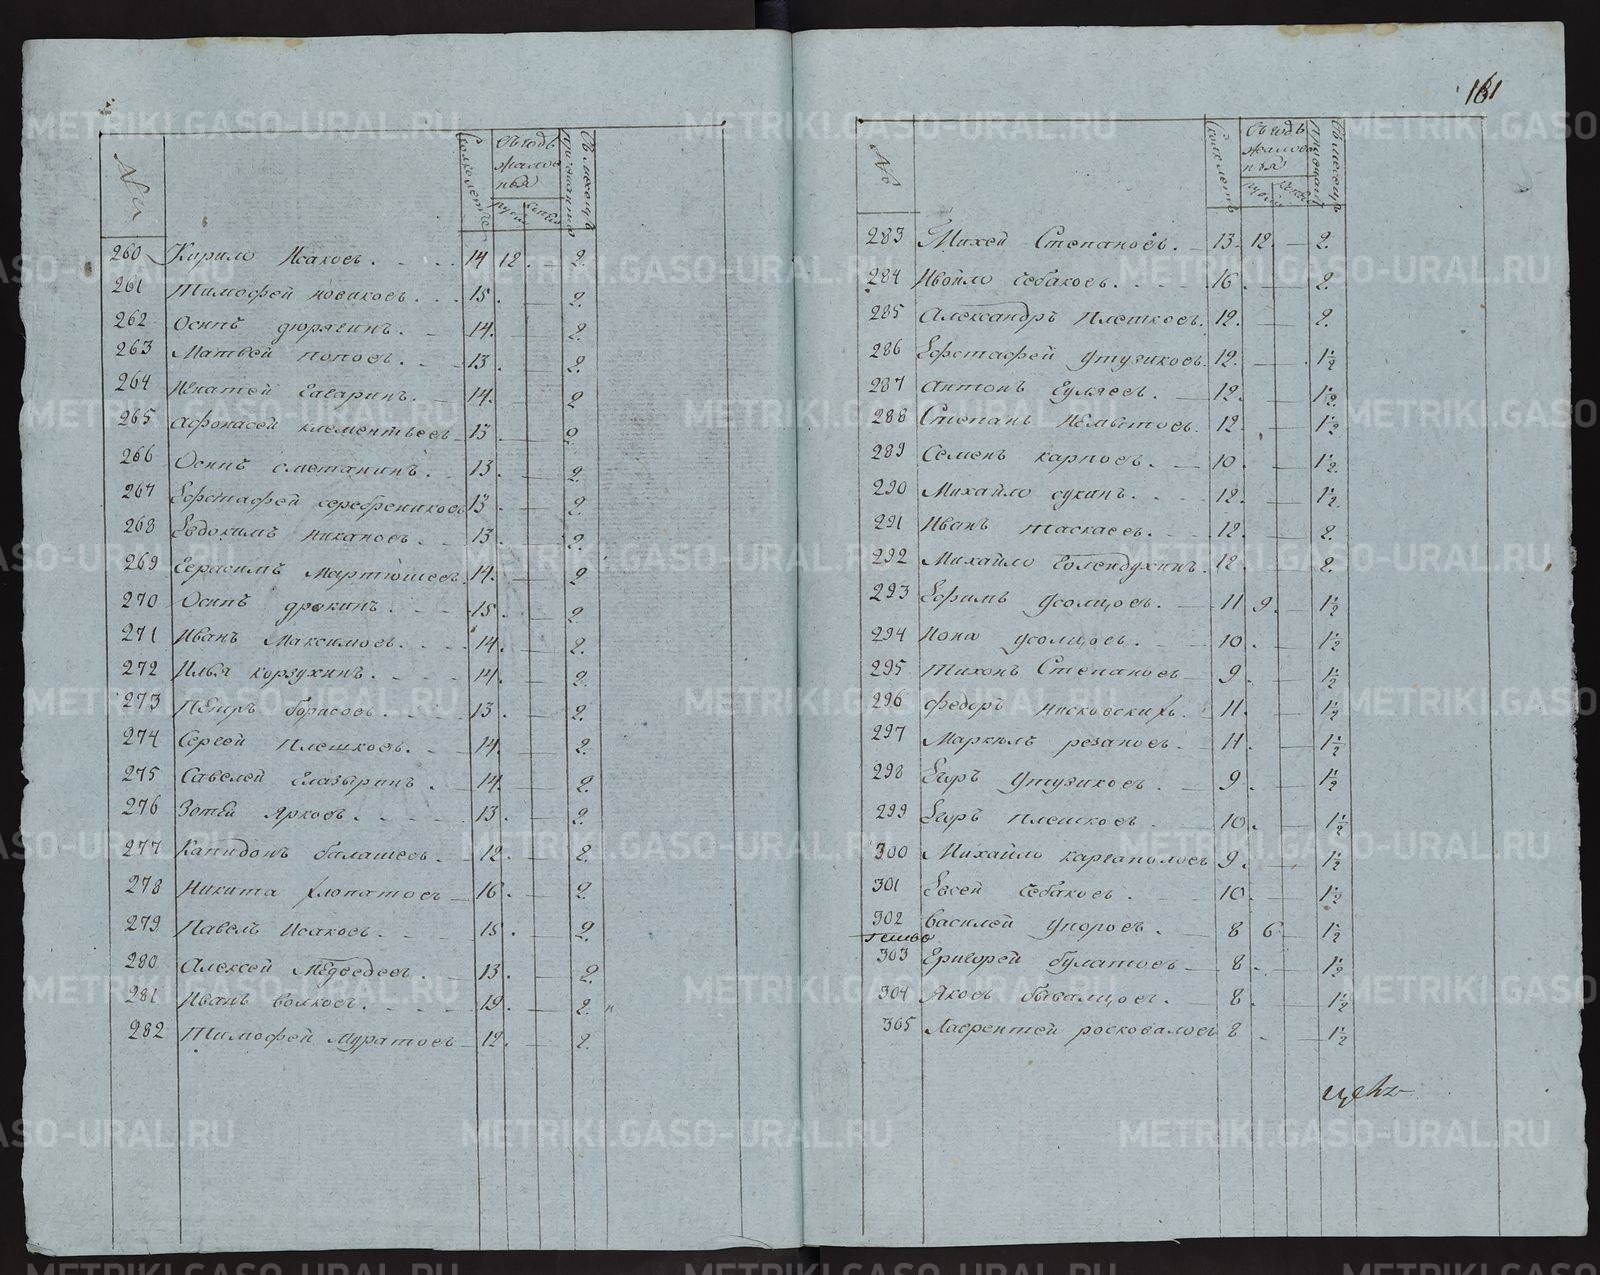 161
№
Сколко летъ
Въ годъ жалованья
рубли
копейки
Въ месецъ провианта
260 Кирило Исаковъ 14 12 2
261 Тимофей новиковъ 15 2
262 Осипъ дюрягинъ 14 2
263 Матвей поповъ 13 2
264 Игнатей Гагаринъ 14 2
265 Афонасей клементьевъ 13 2
266 Осипъ сметанинъ 13 2
267 Ефстафей серебрениковъ 13 2
268 Евдокимъ никоновъ 13 2
269 Герасимъ Мартюшевъ 14 2
270 Осипъ дрокинъ 15 2
271 Иванъ Максимовъ 14 2
272 Илья корзухинъ 14 2
273 Петръ борисовъ 13 2
274 Сергей плешковъ 14 2
275 Савелей Глазыринъ 14 2
276 Зотей Ярковъ 13 2
277 Капидонъ балашевъ 12 2
278 Никита лопатовъ 16 2
279 Павелъ Исаковъ 15 2
280 Алексей Медведевъ 13 2
281 Иванъ волковъ 12 2
282 Тимофей Муратовъ 12 2
№
Сколко летъ
Въ годъ жалованья
рубли
копейки
Въ месецъ провианта
283 Михей Степановъ 13 12 2
284 Ивойло Себаковъ 16 2
285 Александръ плешковъ 12 2
286 Ефстафей Утузиковъ 12 1½
287 Антонъ Гуляевъ 12 1½
288 Степанъ Немытовъ 12 1½
289 Семенъ карповъ 10 1½
290 Михайло суканъ 12 1½
291 Иванъ таскаевъ 12 2
292 Михайло Голендухинъ 12 2
293 Ефимъ усолцовъ 11 9 1½
294 Иона усолцовъ 10 1½
295 Тихонъ Степановъ 9 1½
296 Федоръ нисковскихъ 11 1½
297 Маркелъ резановъ 11 1½
298 Егуръ Утузиковъ 9 1½
299 Егуръ плешковъ 10 1½
300 Михайло каргаполовъ 9 1½
301 Евсей Себаковъ 10 1½
302 Василей упоровъ 8 6 1½
303 Григорей булатовъ 8 1½
304 Яковъ бывалцовъ 8 1½
305 Лаврентей росковаловъ 8 1½
METRIKI.GASO-URAL.RU